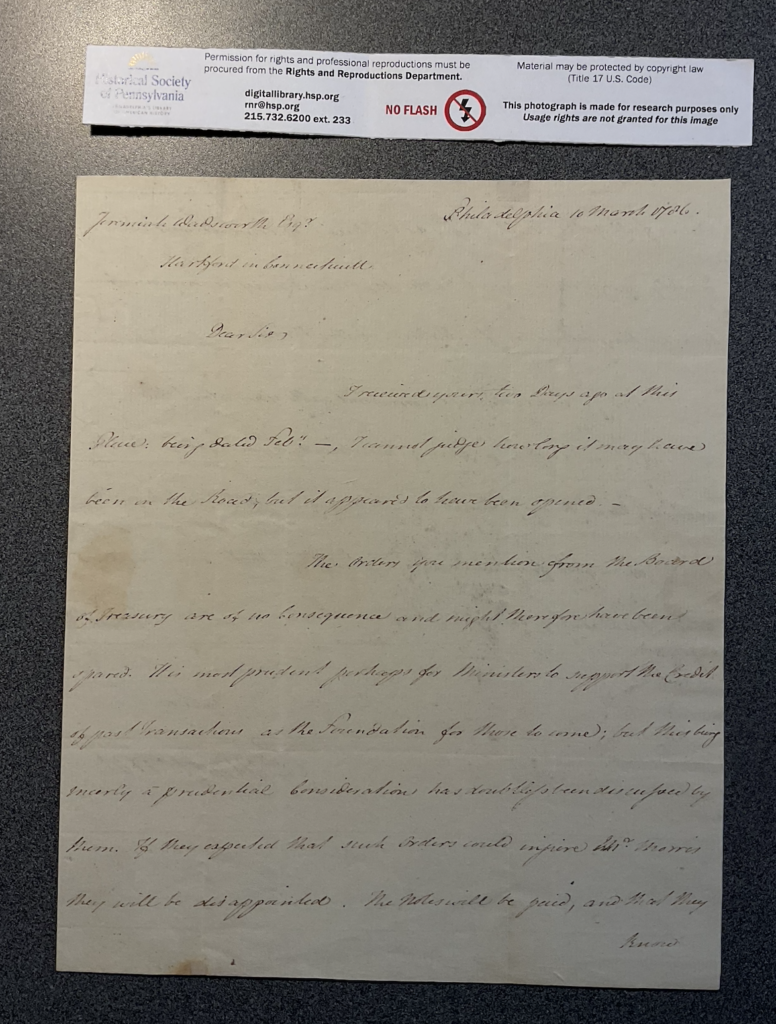 Historical Society
of Pennsylvania
Permission for rights and professional reproductions must be
procured from the Rights and Reproductions Department.
digitallibrary.hsp.org
rnr@hsp.org
215.732.6200 ext. 233
NO FLASH
Material may be protected by copyright law
(Title 17 U.S. Code)
This photograph is made for research purposes only
Usage rights are not granted for this image
Philadelphia 10 March 1786.
Jeremiah Wadsworth Esqr
Hartford in Connecticutt
Dear Sir,
I received yours, two Days ago at this
Place: being dated Feby. —, I cannot judge how long it may have
been on the Road, but it appears to have been opened. —
The Orders you mention from the Board
of Treasury are of no Consequence and might therefore have been
spared. It is most prudent perhaps for Ministers to support the Credit
of past Transactions as the Foundation for those to come; but this being
merely a prudential Consideration has doubtless been discussed by
them. If they expected that such Orders could injure Mr. Morris
they will be disappointed. The Notes will be paid, and that they
know